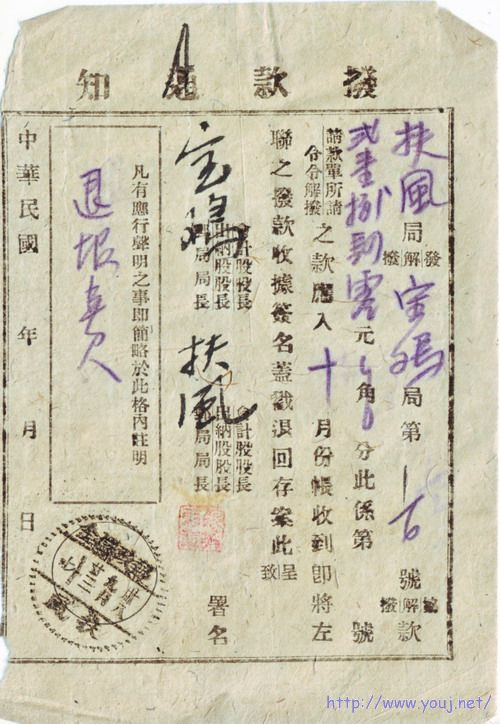 撥款通知
扶風局發解撥宝鸡局第號撥解款
零元角分此係第號
請款單所請
令令解撥
之款應入十月份帳收到即將左
聯之撥款收據簽名蓋戳退回存案此致呈
宝鸡
會計股股長
出納股股長
局局長
扶風
會計股股長
出納股股長
局局長
署名
凡有應行聲明之事即簡略於此格內註明
中華民國 年 月 日
扶風
http://www.youj.net/